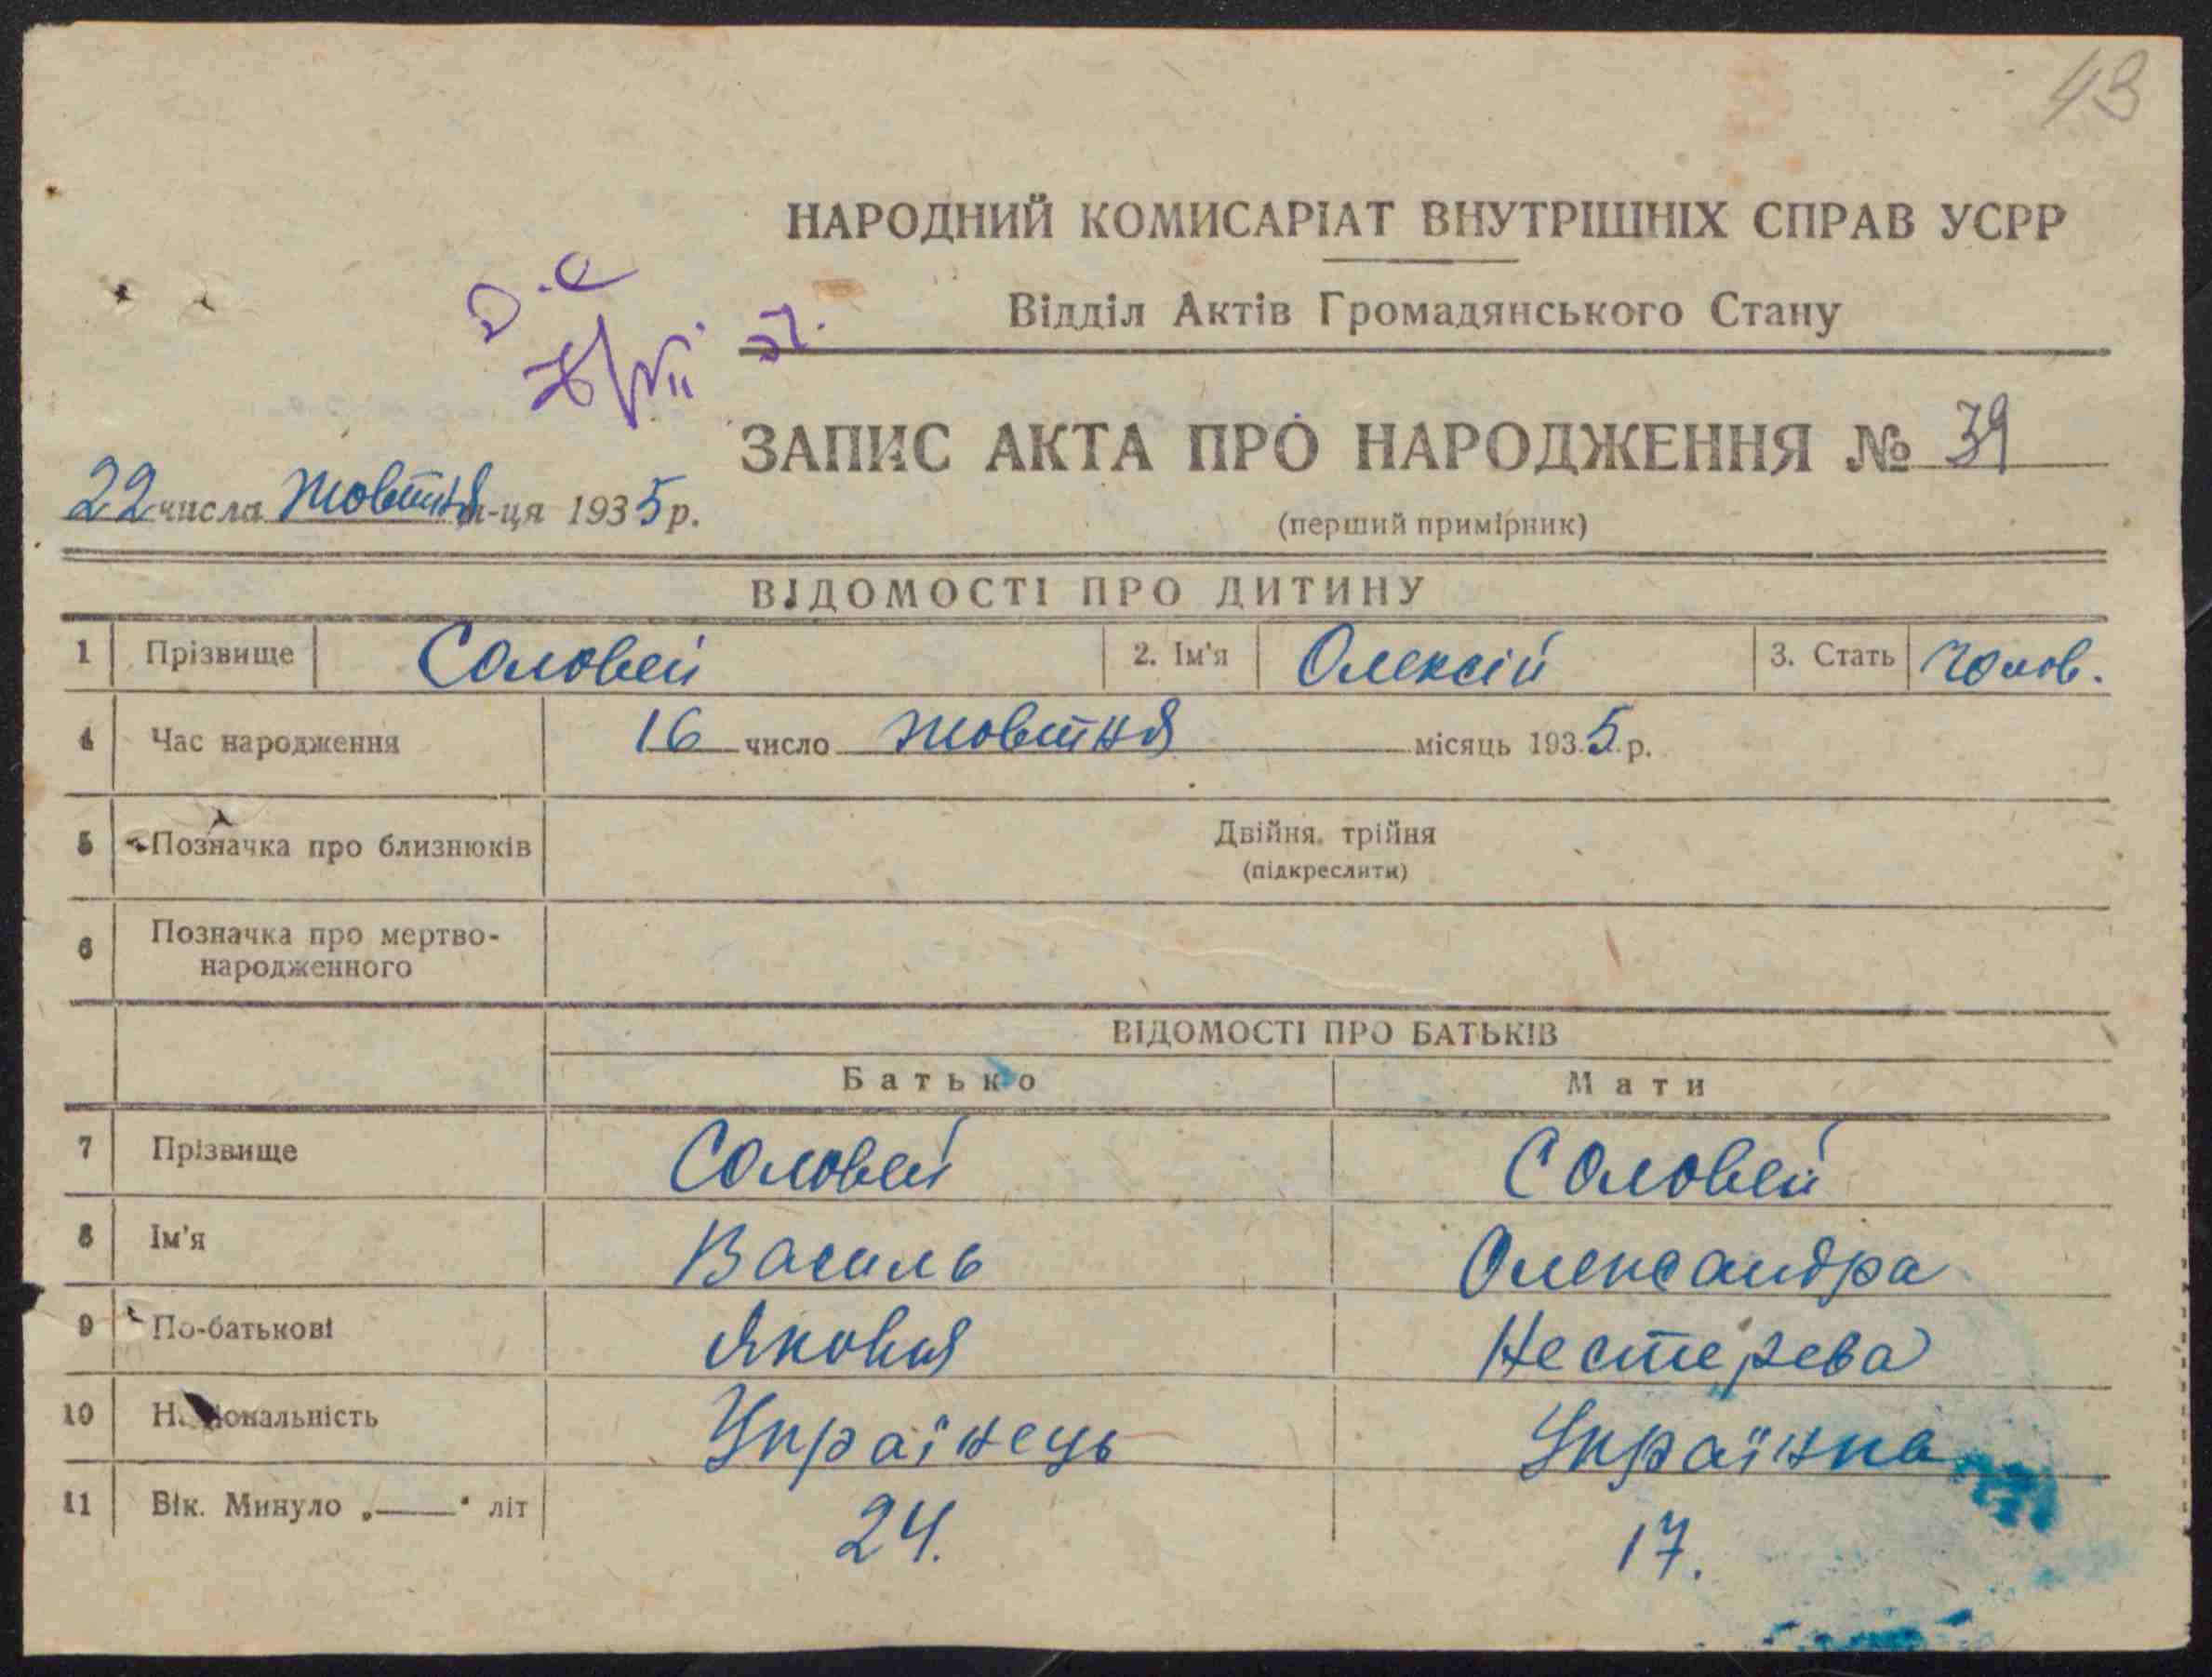 43
НАРОДНИЙ КОМИСАРІАТ ВНУТРІШНІХ СПРАВ УСРР
Відділ Актів Громадянського Стану
ЗАПИС АКТА ПРО НАРОДЖЕННЯ № 39
22 числа Жовтня м-ця 1935 р.
(перший примірник)
ВІДОМОСТІ ПРО ДИТИНУ
1 Прізвище Соловей 2. Ім'я Олексій 3. Стать Чолов.
4 Час народження 16 число Жовтня місяць 1935 р.
5 Позначка про близнюків Двійня, трійня
(підкреслити)
6 Позначка про мертво-
народженного
ВІДОМОСТІ ПРО БАТЬКІВ
Батько Мати
7 Прізвище Соловей Соловей
8 Ім'я Василь Олександра
9 По-батькові Яковля Нестерева
10 Національність Українець Українка
11 Вік. Минуло „——" літ 24. 17.